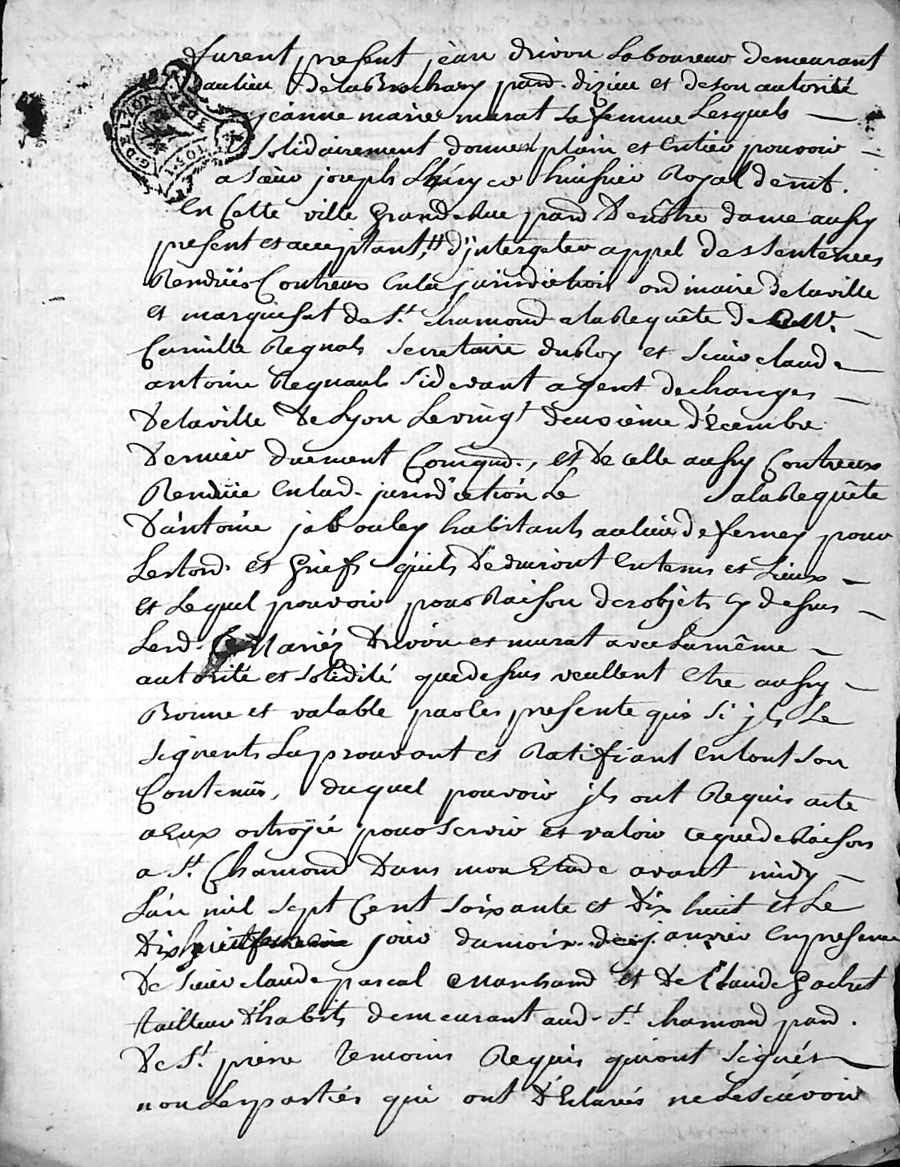 furent present jean drivon Laboureur demeurant
au lieu de la Brochary parr. dizieu et de son autorité
jeanne marie murat sa femme Lesquels
solidairement donnent plain et entier pouvoir
a sieur joseph huissier Royal demt.
en Cette ville Grande Rue parr. De nôtre dame aussy
present et acceptant, d'interjeter appel des sentences
Renduës Contreux en la jurisdiction ordinaire de la ville
et marquisat de St. chamond a la Requête de Mr.
Camille Regnaud secretaire du Roy et sieur claude
antoine Regnauls sidevant agent de changes
De la ville De Lyon Le vingt deuxieme décembre
Dernier duement Comqué., et De celle aussy Contreux
Renduë en lad. jurisdiction Le a la Requête
D'antoine jabouley habitants au lieu de fernay pour
Les tord. et Griefs quils Deduiront en tems et Lieux
et Lequel pouvoir pour Raison des objets cy dessus
Lesd. Mariéz Drivon et murat avec la même
autorité et solidité que dessus veullent etre aussy
Bonne et valable par les presente que si jls Le
signent Laprouvant et Ratifiant en tout son
Contenus, duquel pouvoir jls ont Requis acte
a Eux octroyée pour servir et valoir ce que de Raison
a St. Chamond Dans mon Etude avant midy
L'an mil sept Cent soixante et Dix huit et Le
Dix jour du mois de janvier en presence
De sieur claude pascal Marchand et De Claude Gachet
tailleur D'habits demeurant aud. St. chamond parr.
De St. pierre temoins Requis qui ont signés
non Les partiés qui ont Déclarés ne Le sçavoir
G. DE LYON